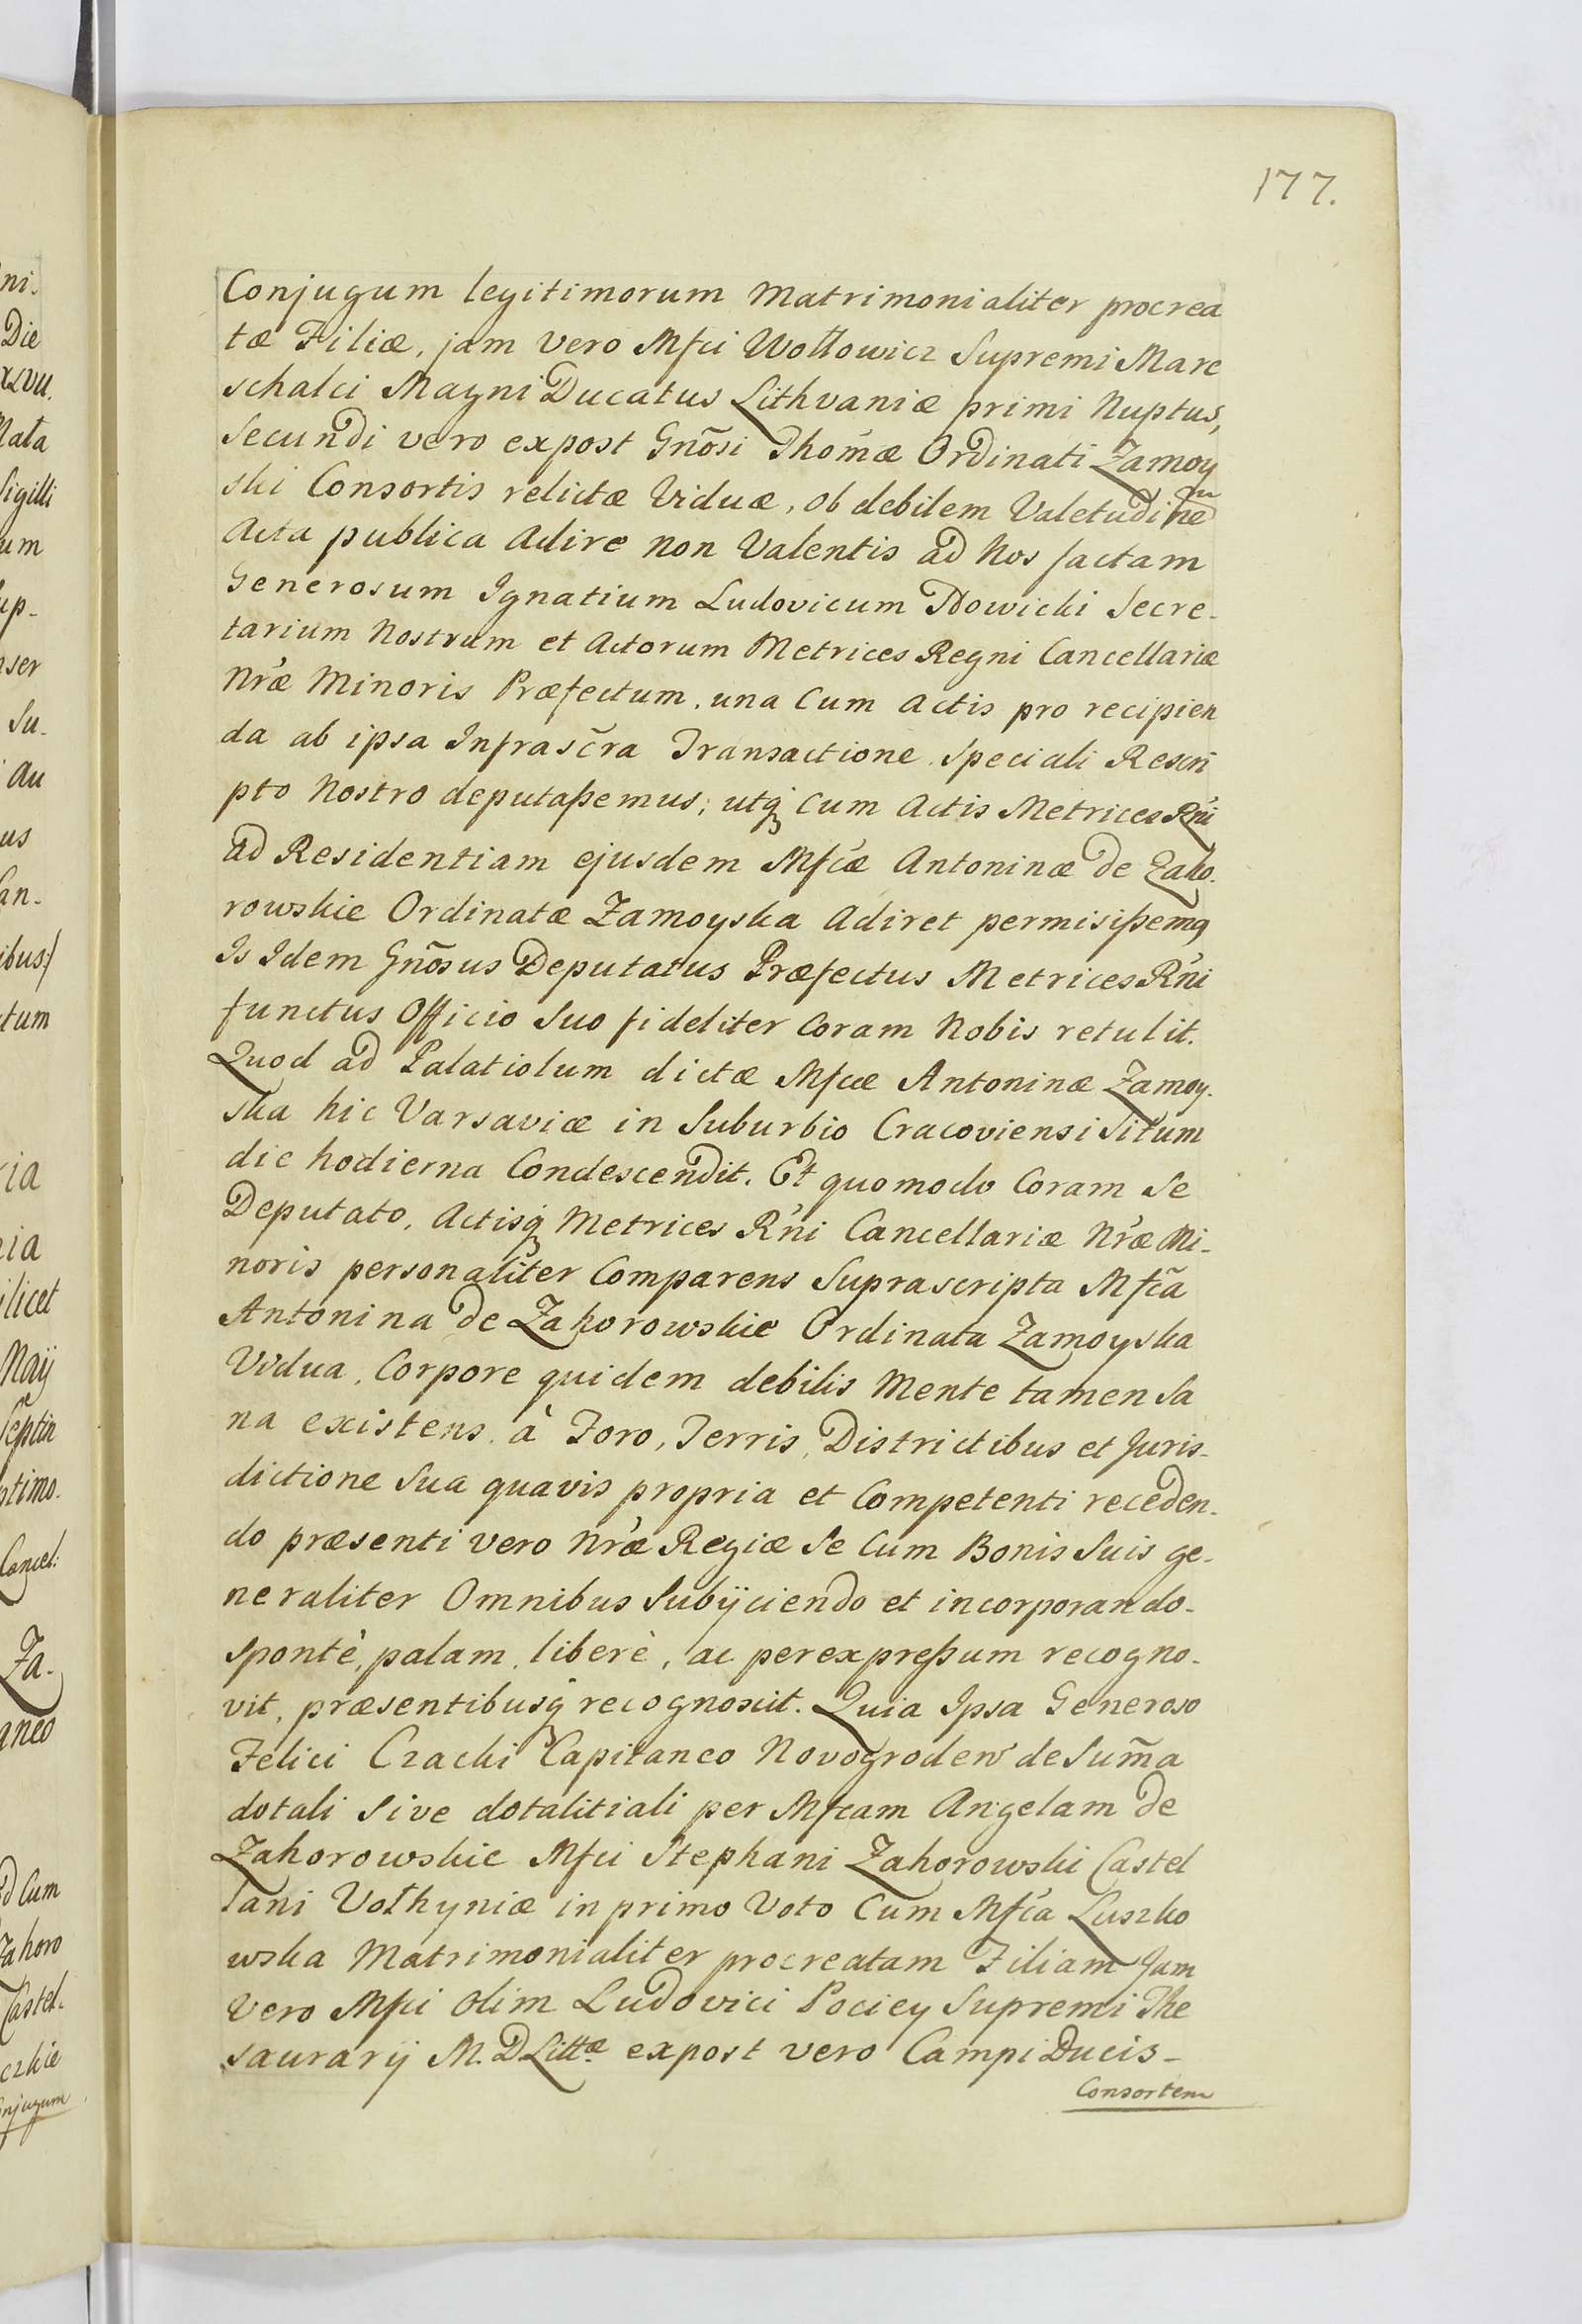 177.
Conjugum legitimorum Matrimonialiter procrea
tæ Filiæ, jam vero Mfci Wołłowicz Supremi Mare
schalci Magni Ducatus Lithvaniæ primi Nuptus,
Secundi vero expost Gnõsi Thomæ Ordinati Zamoy
ski Consortis relictæ Viduæ, ob debilem Valetudinẽ
Acta publica Adire non Valentis ad Nos factam
Generosum Ignatium Ludovicum Nowicki Secre-
tarium Nostrum et Actorum Metrices Regni Cancellariæ
Nr̃æ Minoris Præfectum, una Cum Actis pro recipien
da ab ipsa Infrascr̃a Transactione Speciali Rescri
pto Nostro deputaßemus; utq̃ Cum Actis Metrices Rñi
ad Residentiam ejusdem Mfcæ Antoninæ de Zaho-
rowskie Ordinatæ Zamoyska Adiret permisißemq
Is Idem Gnõsus Deputatus Præfectus Metrices Rñi
functus Officio Suo fideliter Coram Nobis retulit.
Quod ad Palatiolum dictæ Mfcæ Antoninæ Zamoy-
ska hic Varsaviæ in Suburbio Cracoviensi Situm
die hodierna Condescendit. Et quomodo Coram Se
Deputato, Actisq̃ Metrices Rñi Cancellariæ Nr̃æ Mi-
noris personaliter Comparens Suprascripta Mfcã
Antonina de Zahorowskie Ordinata Zamoyska
Vidua, Corpore quidem debilis Mente tamen Sa
na existens, à Foro, Terris, Districtibus et Juris-
dictione Sua quavis propria et Competenti receden-
do præsenti vero Nr̃æ Regiæ Se Cum Bonis Suis ge-
neraliter Omnibus Subijciendo et incorporando-
Spontè, palam, liberè, ac perexpreßum recogno-
vit, præsentibusq̃ recognoscit. Quia Ipsa Generoso
Felici Czacki Capitaneo Novogroden' de Sum̃a
dotali Sive dotalitiali per Mfcam Angelam de
Zahorowskie Mfci Stephani Zahorowski Castel
lani Vołhyniæ in primo Voto Cum Mfcã Luszko
wska Matrimonialiter procreatam Filiam Jam
Vero Mfci Olim Ludovici Pociey Supremi The
saurarij M. D Littæ expost vero Campi Ducis-
Consortem